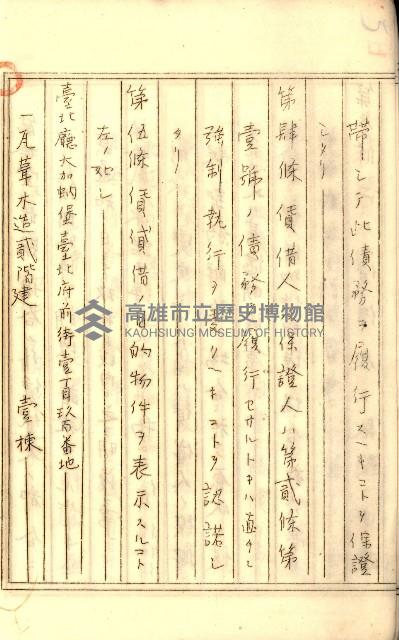 帶シテ此債務ヲ履行スヘキコトヲ保證
シタリ
第肆條賃借人及保證人ハ第貳條第
壹號ノ債務ヲ履行セサルトキハ直チニ
強制執行ヲ受クヘキコトヲ認諾シ
タリ
第伍條賃貸借ノ目的物件ヲ表示スルコト
左ノ如シ
臺北廳大加蚋堡臺北府前街壹丁目玖番地
一瓦葺木造貳階建 壹棟
高雄市立歷史博物館
KAOHSIUNG MUSEUM OF HISTORY